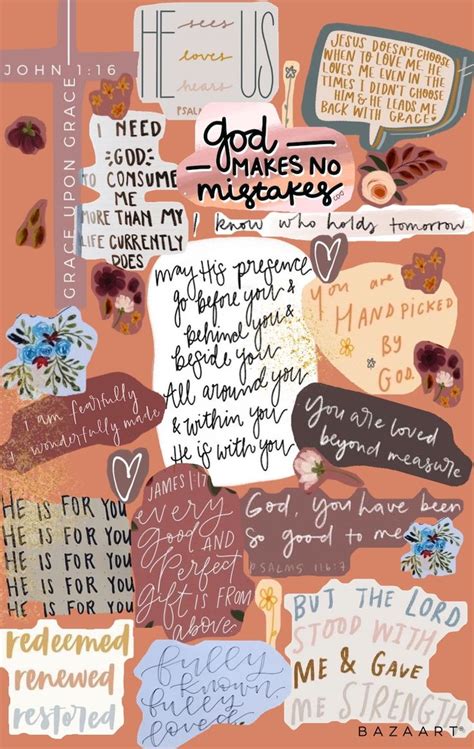 JOHN 1:16
GRACE UPON GRACE
HE sees US
loves
hears
PSALM
JESUS DOESN'T CHOOSE
WHEN TO LOVE ME. HE
LOVES ME EVEN IN THE
TIMES I DIDN'T CHOOSE
HIM & HE LEADS ME
BACK WITH GRACE
I NEED
GOD
TO CONSUME
ME
MORE THAN MY
LIFE CURRENTLY
DOES
god
MAKES NO
mistakes
I know who holds tomorrow
may His presence
go before you &
behind you &
beside you
All around you
& within you
He is with you
You are
HANDPICKED
BY
GOD.
I am fearfully
& wonderfully made
You are loved
beyond measure
HE IS FOR YOU
HE IS FOR YOU
HE IS FOR YOU
HE IS FOR YOU
HE IS FOR YOU
JAMES 1:17
every
Good AND
Perfect
Gift is FROM
above
God, You have been
so good to me
PSALMS 116:7
redeemed
renewed
restored
fully
known,
fully
loved.
BUT THE LORD
STOOD WITH
ME & GAVE
ME STRENGTH
BAZAART